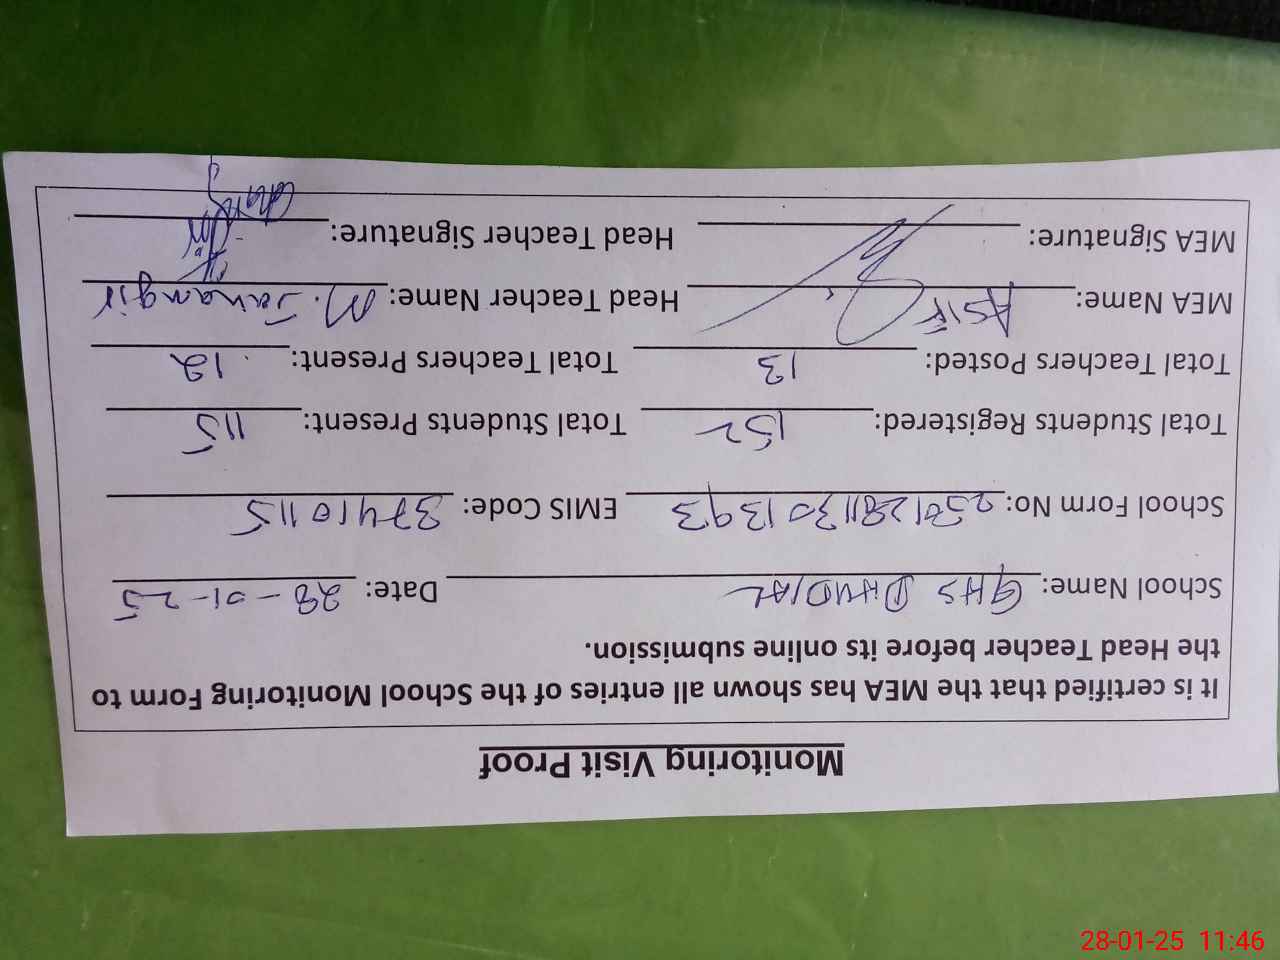 Monitoring Visit Proof
It is certified that the MEA has shown all entries of the School Monitoring Form to
the Head Teacher before its online submission.
School Name: GHS DHUDIAL Date: 28-01-25
School Form No: EMIS Code: 37410115
Total Students Registered: 152 Total Students Present: 115
Total Teachers Posted: 13 Total Teachers Present: 12
MEA Name: ASIF Head Teacher Name: M. Jahangir
MEA Signature: Head Teacher Signature:
28-01-25 11:46